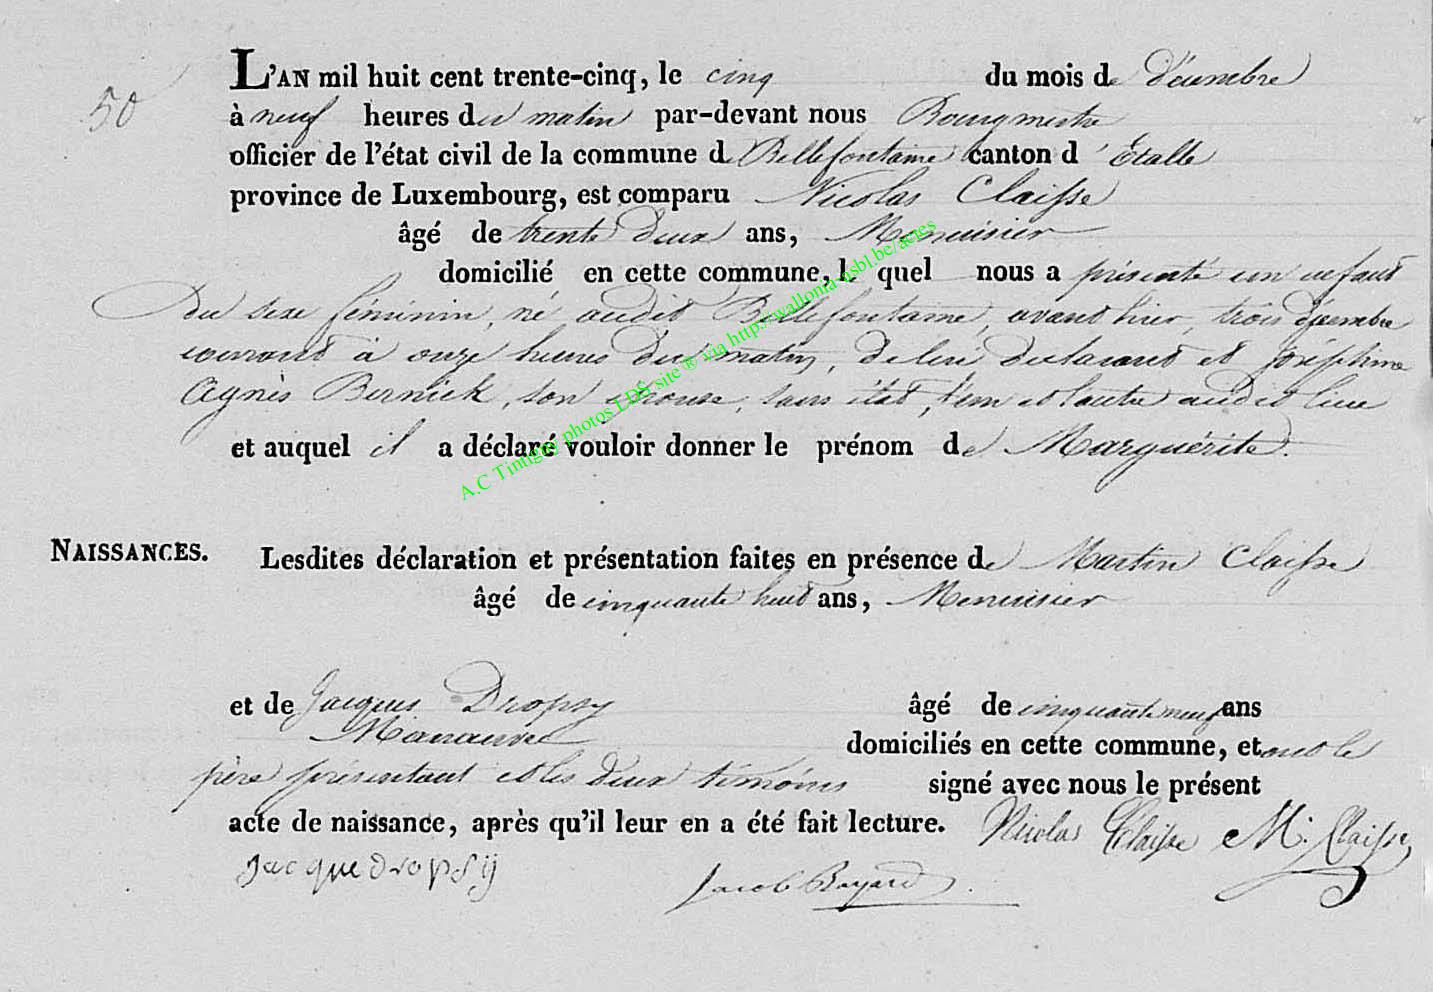 50
L'AN mil huit cent trente-cinq, le cinq du mois de Décembre
à neuf heures du matin par-devant nous Bourgmestre
officier de l'état civil de la commune de Bellefontaine canton d'Etalle
province de Luxembourg, est comparu Nicolas Claisse
âgé de trente deux ans, Menuisier
domicilié en cette commune, le quel nous a présenté un enfant
du sexe féminin, né audit Bellefontaine, avant hier trois décembre
courant à onze heures du matin, de lui déclarant et Joséphine
Agnès Bernick, son épouse, sans état, l'un et l'autre audit lieu
et auquel il a déclaré vouloir donner le prénom de Marguérite.
A.C Tintigny photos LDS site ® via http://wallonia-asbl.be/actes
NAISSANCES.
Lesdites déclaration et présentation faites en présence de Martin Claisse
âgé de cinquante huit ans, Menuisier
et de Jacques Dropsy âgé de cinquante neuf ans
Manœuvre domiciliés en cette commune, et ont le
père présentant et les deux témoins signé avec nous le présent
acte de naissance, après qu'il leur en a été fait lecture. Nicolas Claisse M. Claisse
Jacque dropsy Jacob Bayard